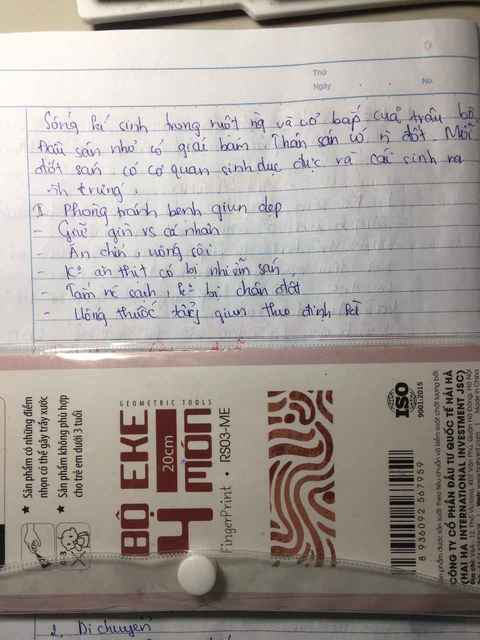 Thứ
Ngày
No.
Sống kí sinh trong ruột ng và cơ bắp của trâu bò
Đầu sán nhỏ có giác bám. Thân sán có n đốt. Mỗi
đốt sán có cơ quan sinh dục đực và cái sinh ra
trứng.
Phòng tránh bệnh giun dẹp
- Giữ gìn vs cá nhân
- Ăn chín, uống sôi
- K: ăn thịt có bị nhiễm sán,
- Tắm nc sạch, k: bị chân đất
- Uống thuốc tẩy giun theo định kì
★ Sản phẩm có những điểm
nhọn có thể gây trầy xước
★ Sản phẩm không phù hợp
cho trẻ em dưới 3 tuổi
0-3
BỘ EKE
GEOMETRIC TOOLS
20cm
4 MÓN
FingerPrint • RS03-ME
ISO
9001:2015
8 936092 567959
CÔNG TY CỔ PHẦN ĐẦU TƯ QUỐC TẾ HẢI HÀ
(HAI HA INTERNATIONAL INVESTMENT JSC)
2. Di chuyển